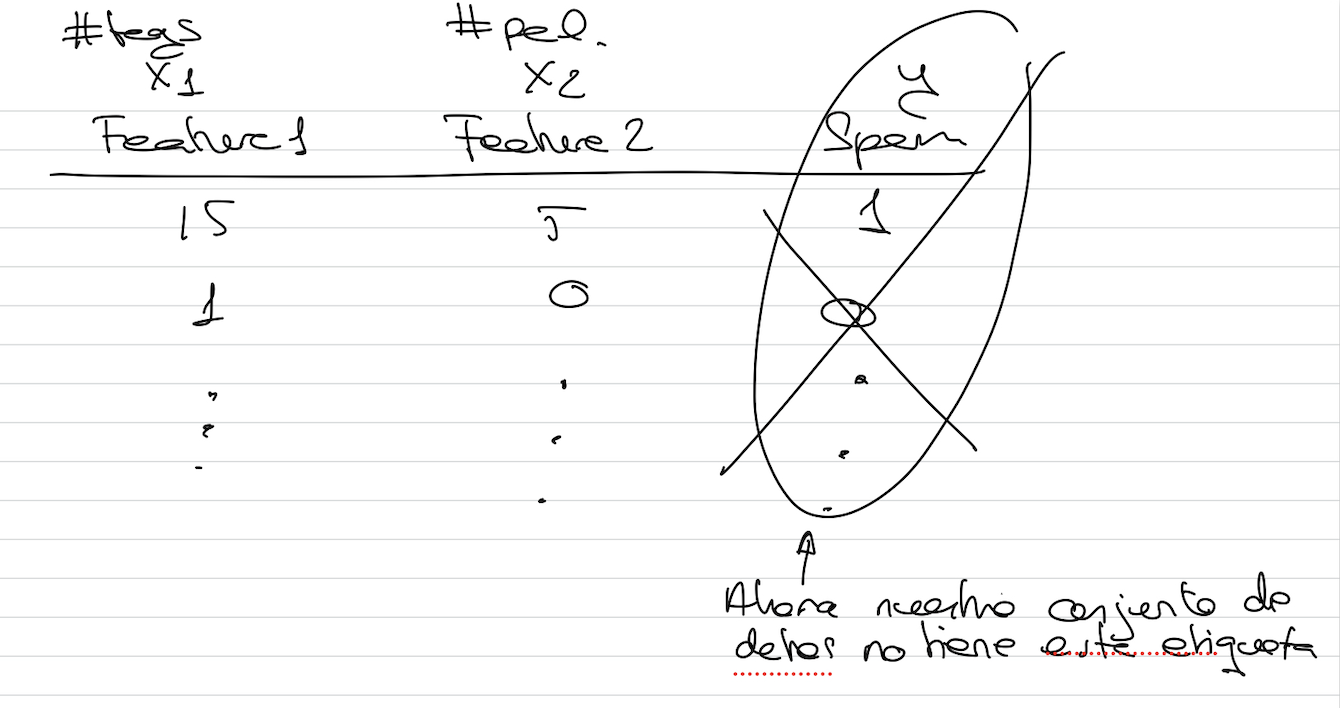 #tags #pal.
x1 x2 y
Feature 1 Feature 2 Spam
15 5 1
1 0 0
Ahora nuestro conjunto de
datos no tiene esta etiqueta